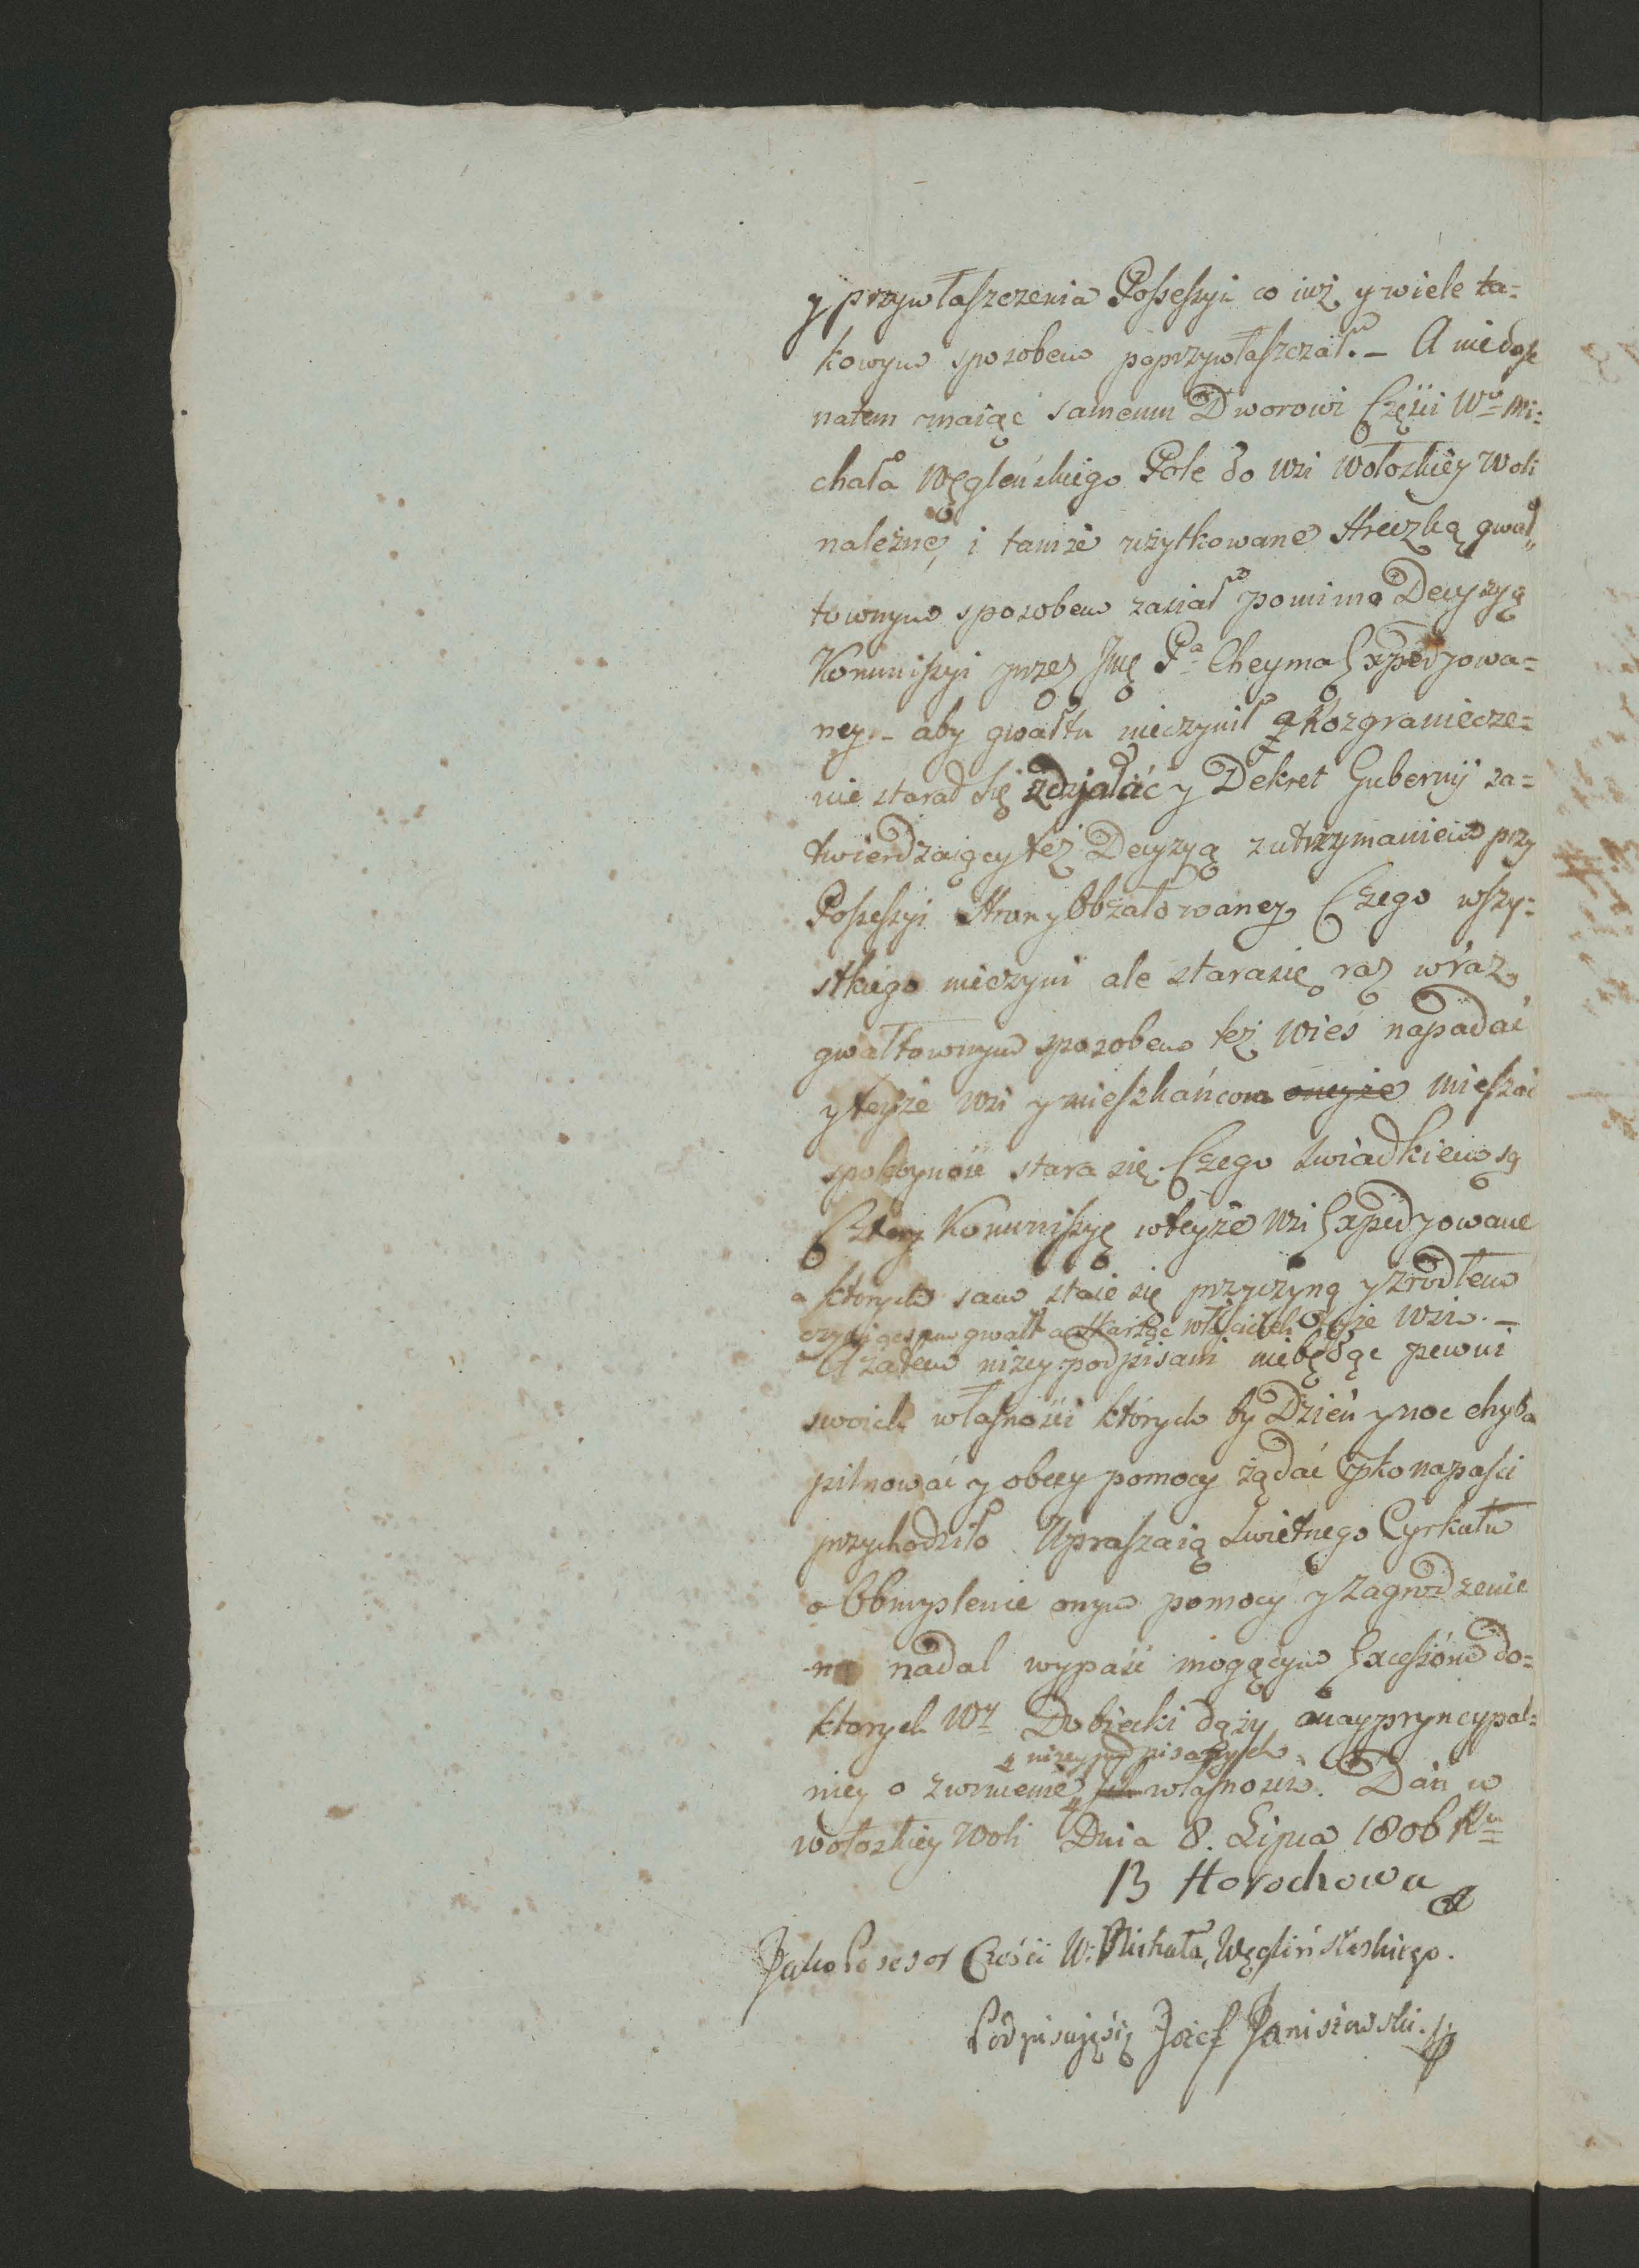 y przywłaszczenia Possessyi co iuż y wiele ta=
kowym sposobem poprzywłaszczał. – A niedość
natem maiąc samemu Dworowi Części Wo Mi=
chała Węgleńskiego Pole do wsi Wołoskiey Woli
należne, i tamże użytkowane Hreczką gwał„
townym sposobem zasiał pomimo Decyzyą
Kommissyi przez Jmę Pa Cheyma Expedjowa=
ney – aby gwałtu nieczynił a Rozgraniecze=
nie starał się zdziałać y Dekret Gubernij za=
twierdzaiący też Decyzyą z utrzymaniem przy
Possessyi Strony Obżałowaney Czego wszy=
stkiego nieczyni ale starasię raz wraz
gwałtownym sposobem też wieś napadać
y teyże wsi y mieszkańcom oneyże mieszać
spokoyność stara się. Czego świadkiem są
Cztery Kommissyę w teyże wsi Expedjowane
a ktorych sam staie się przyczyną y zrodłem
czyniąc sam gwałt a skarżąc właścicieli teyże wsi. –
A zatem niżey podpisani niebędąc pewni
swoich własności których by Dzień y noc chyba
pilnować y obcey pomocy żądać pko napaści
przychodziło Upraszaią Swietnego Cyrkułu
o Obmyslenie onym pomocy y zagrodzenie
nadal wypaść mogącym Excessóm do=
ktorych Wy Dobiecki dąży a naypryncypal=
niey o zwrucenie własności. Dań w
niżey podpisanych
Wołoskiey Woli Dnia 8. Lipca 1806 Ru
B Horochowa
Jako Posesor Cześci W: Michała Węglińskeskiego.
Podpisuięsię Jozef Janiszowski.